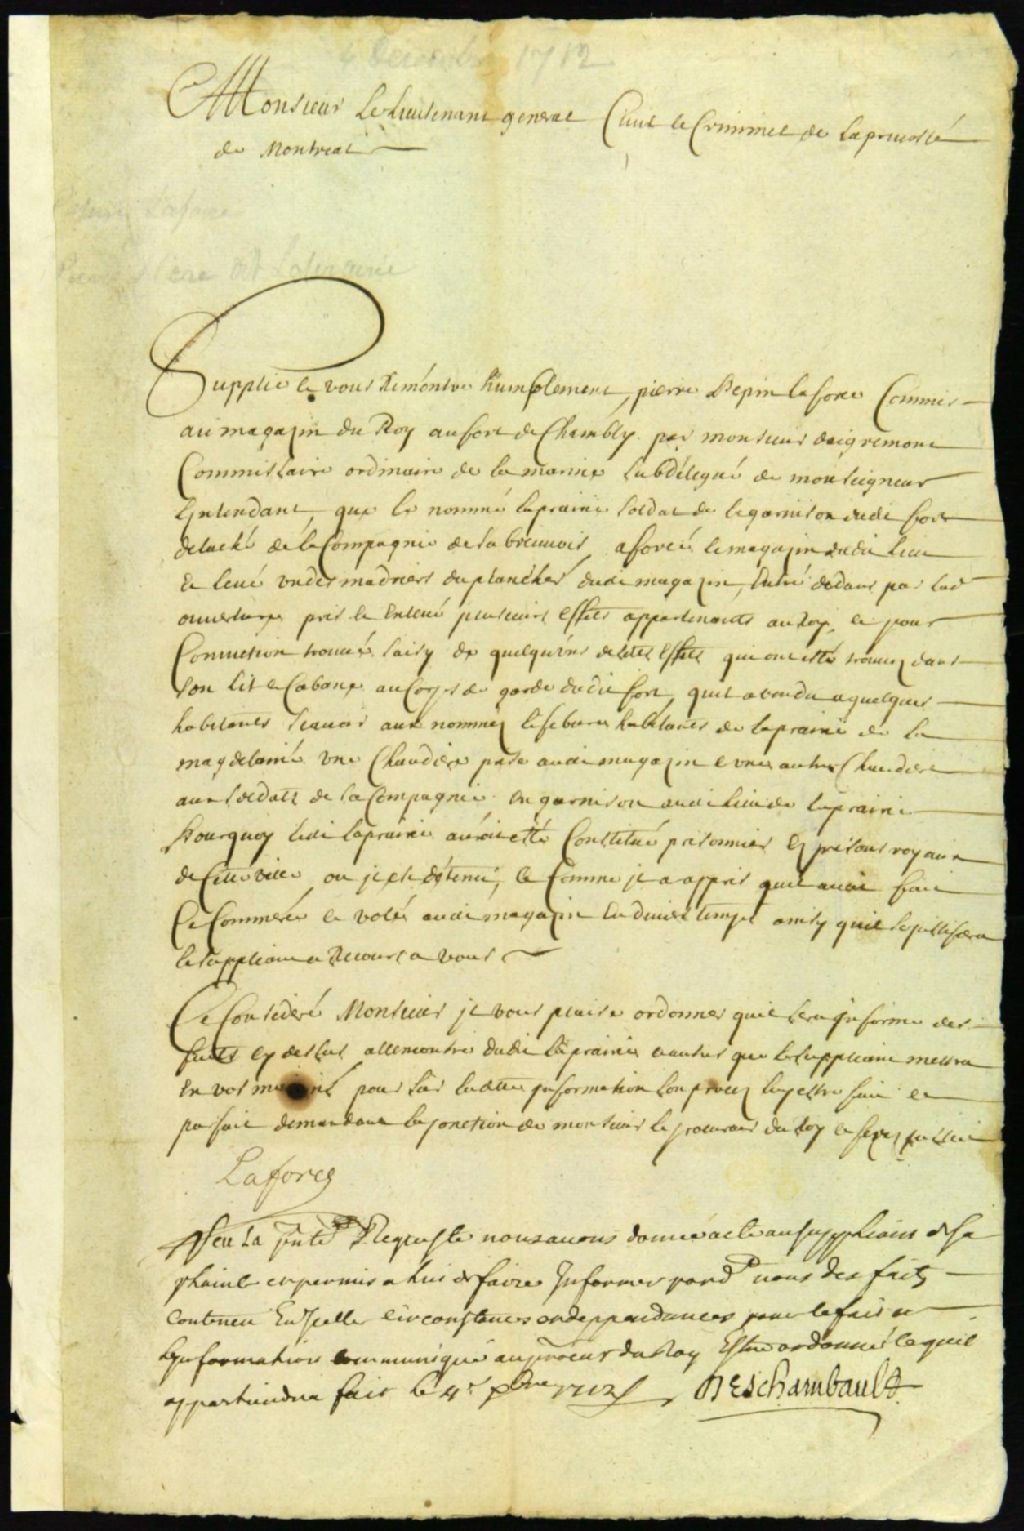 4 Decembre 1712
Monsieur Le Lieutenant general Civil et Criminel de La prevosté
de Montreal
Supplie et vous Remontre humblement, pierre Pepin laforce Commis
au magazin du Roy au fort de Chambly par monsieur daigremont
Commissaire ordinaire de la marine subdélégué de monseigneur
Lintendant, que le nommé laprairie soldat de la garnison dudit fort
detaché de la Compagnie de sabrevois, a forcé le magazin dudit lieu
et levé un des madriers du planchés dudit magazin, entré dedans par lad
ouverture pris et Enlevé plusieurs effets appartenants au Roy, et pour
Conviction trouvé saisy de quelquuns desdits effets qui ont esté trouvez dans
son lit et Cabane au Corps de garde dudit fort, quil a vendu a quelques
habitants scavoir aux nommez lefebure habitants de laprairie de la
magdelaine une Chaudiere prise audit magazin et une autre Chaudiere
aux soldats de la Compagnie en garnison audit lieu de laprairie
Pourquoy ledit laprairie auroit esté Constitué prisonnier Es prisons royaux
de Cette ville, ou il est détenu, et Comme il a appris quil avoit fait
Ce Commerce et volés audit magazin En divers temps ainsy quil se justifiera
le suppliant a Recours a vous
Ce Consideré Monsieur il vous plaise ordonner quil sera Informé des
faits cy dessus allencontre dudit laprairie et autres que le suppliant mettra
En vos mains pour sur ladite Information son procez luy estre fait et
parfait demandant la jonction de monsieur le procureur du Roy et ferez justice
Laforce
Veu La pnte Requeste nous avons donné acte au suppliant de sa
plainte et permis a luy de faire Informer pard nous des faits
conteneu En Icelle circonstances et deppendances pour le fait et
Information communiqué au procur du Roy Estre ordonné ce quil
appartiendra fait le 4e xbre 1712 Deschambault